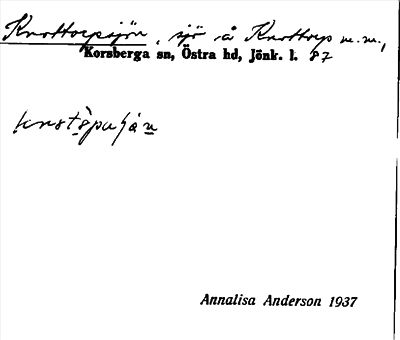 Knottorpasjön, sjö å Knottorp m.m.,
Korsberga sn, Östra hd, Jönk. l. 87
Annalisa Anderson 1937